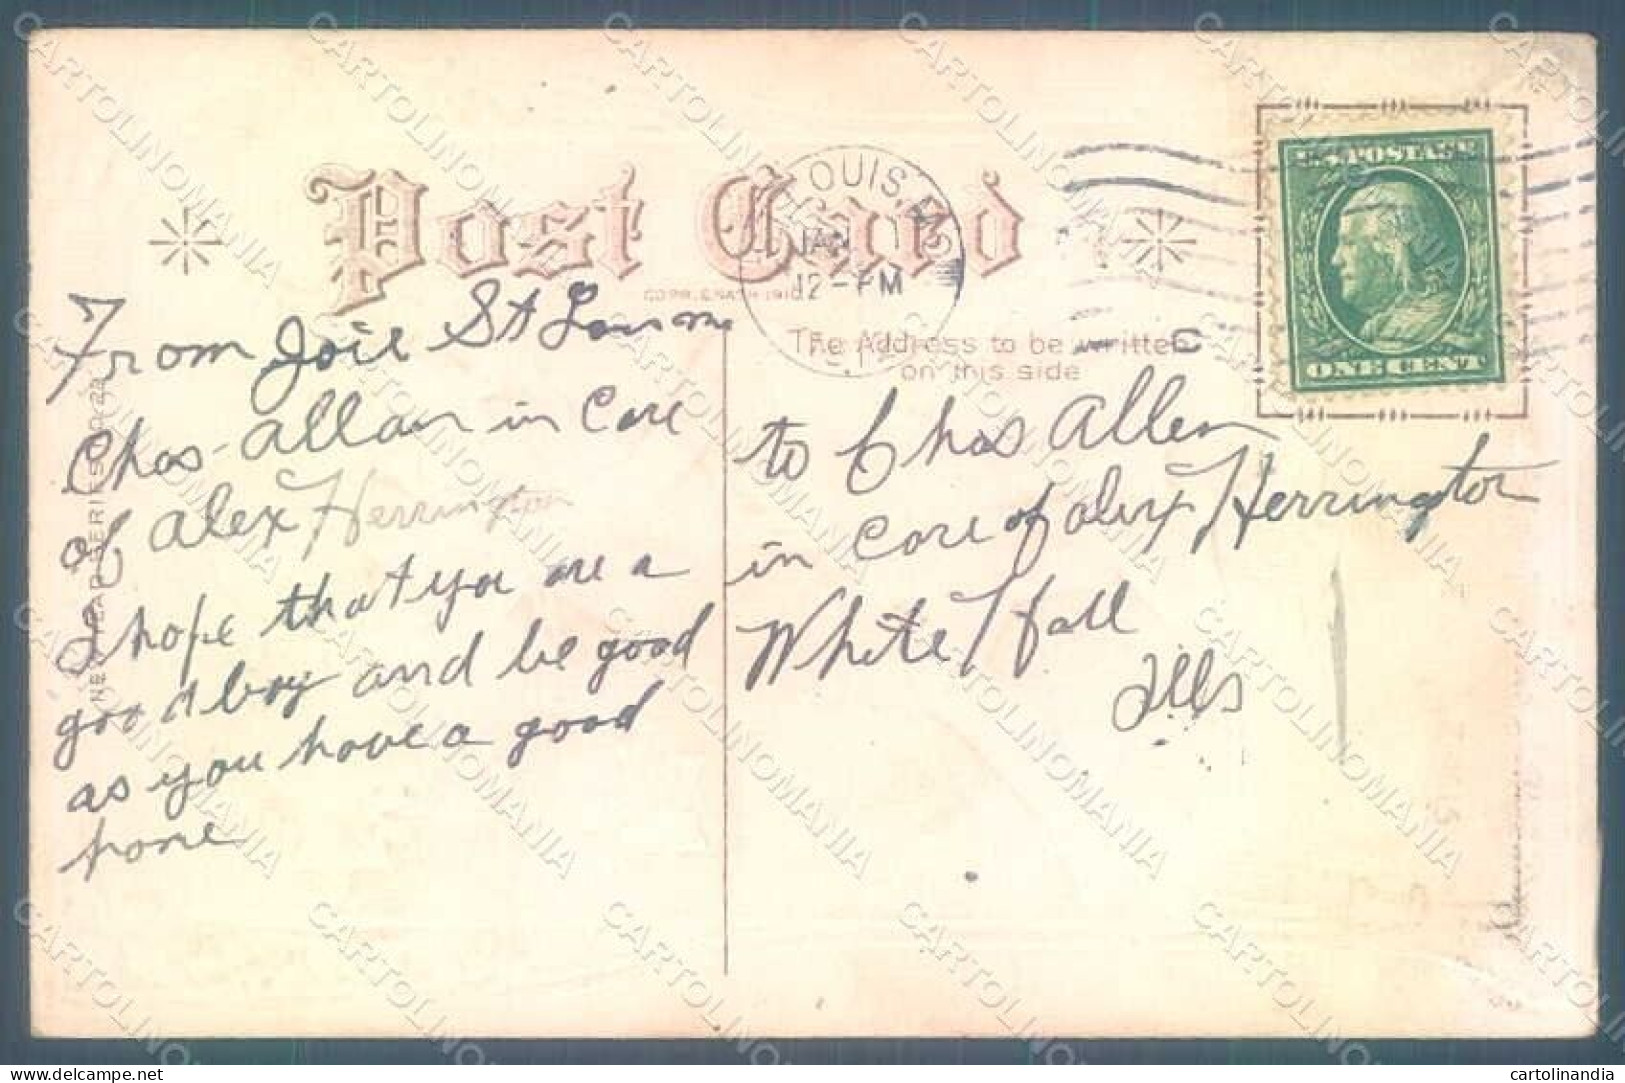 Post Card
ST. LOUIS, MO.
JAN
12-PM
U.S. POSTAGE
ONE CENT
COPR. E. NASH 1910
The Address to be written
on this side
NEW YEAR SERIES
From Joie St Louis mo
Chas-allan in Care
of alex Herrington
I hope that you are a
good boy and be good
as you have a good
home
to Chas Allen
in care of alex Herrington
White Hall
Ills
CARTOLINOMANIA
cartolinandia